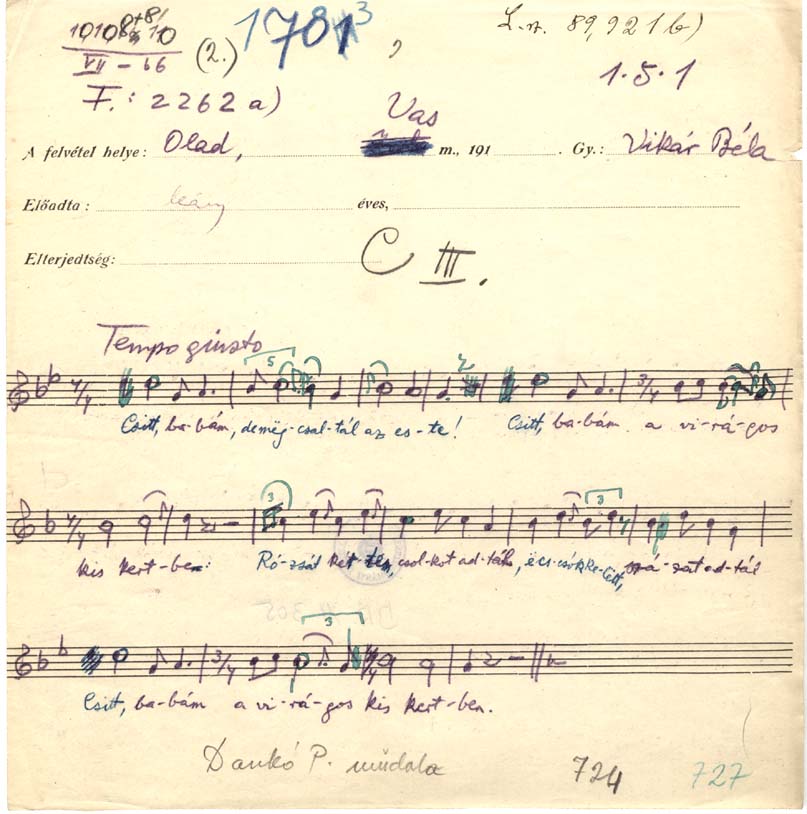 10108+8/10
VII - 66
(2.)
1781 3
L.sz. 89,921 b)
1.5.1
F.: 2262 a)
Vas
A felvétel helye: Olad, m., 191 . Gy.: Vikár Béla
Előadta: leány éves,
Elterjedtség: C III.
Tempo giusto
5
Csitt, ba-bám, de meg-csal-tál az es-te! Csitt, ba-bám a vi-rá-gos
3 3
kis kert-be: Ró-zsát két-
3
Csitt, ba-bám a vi-rá-gos kis kert-ben.
Dankó P. műdala
724 727